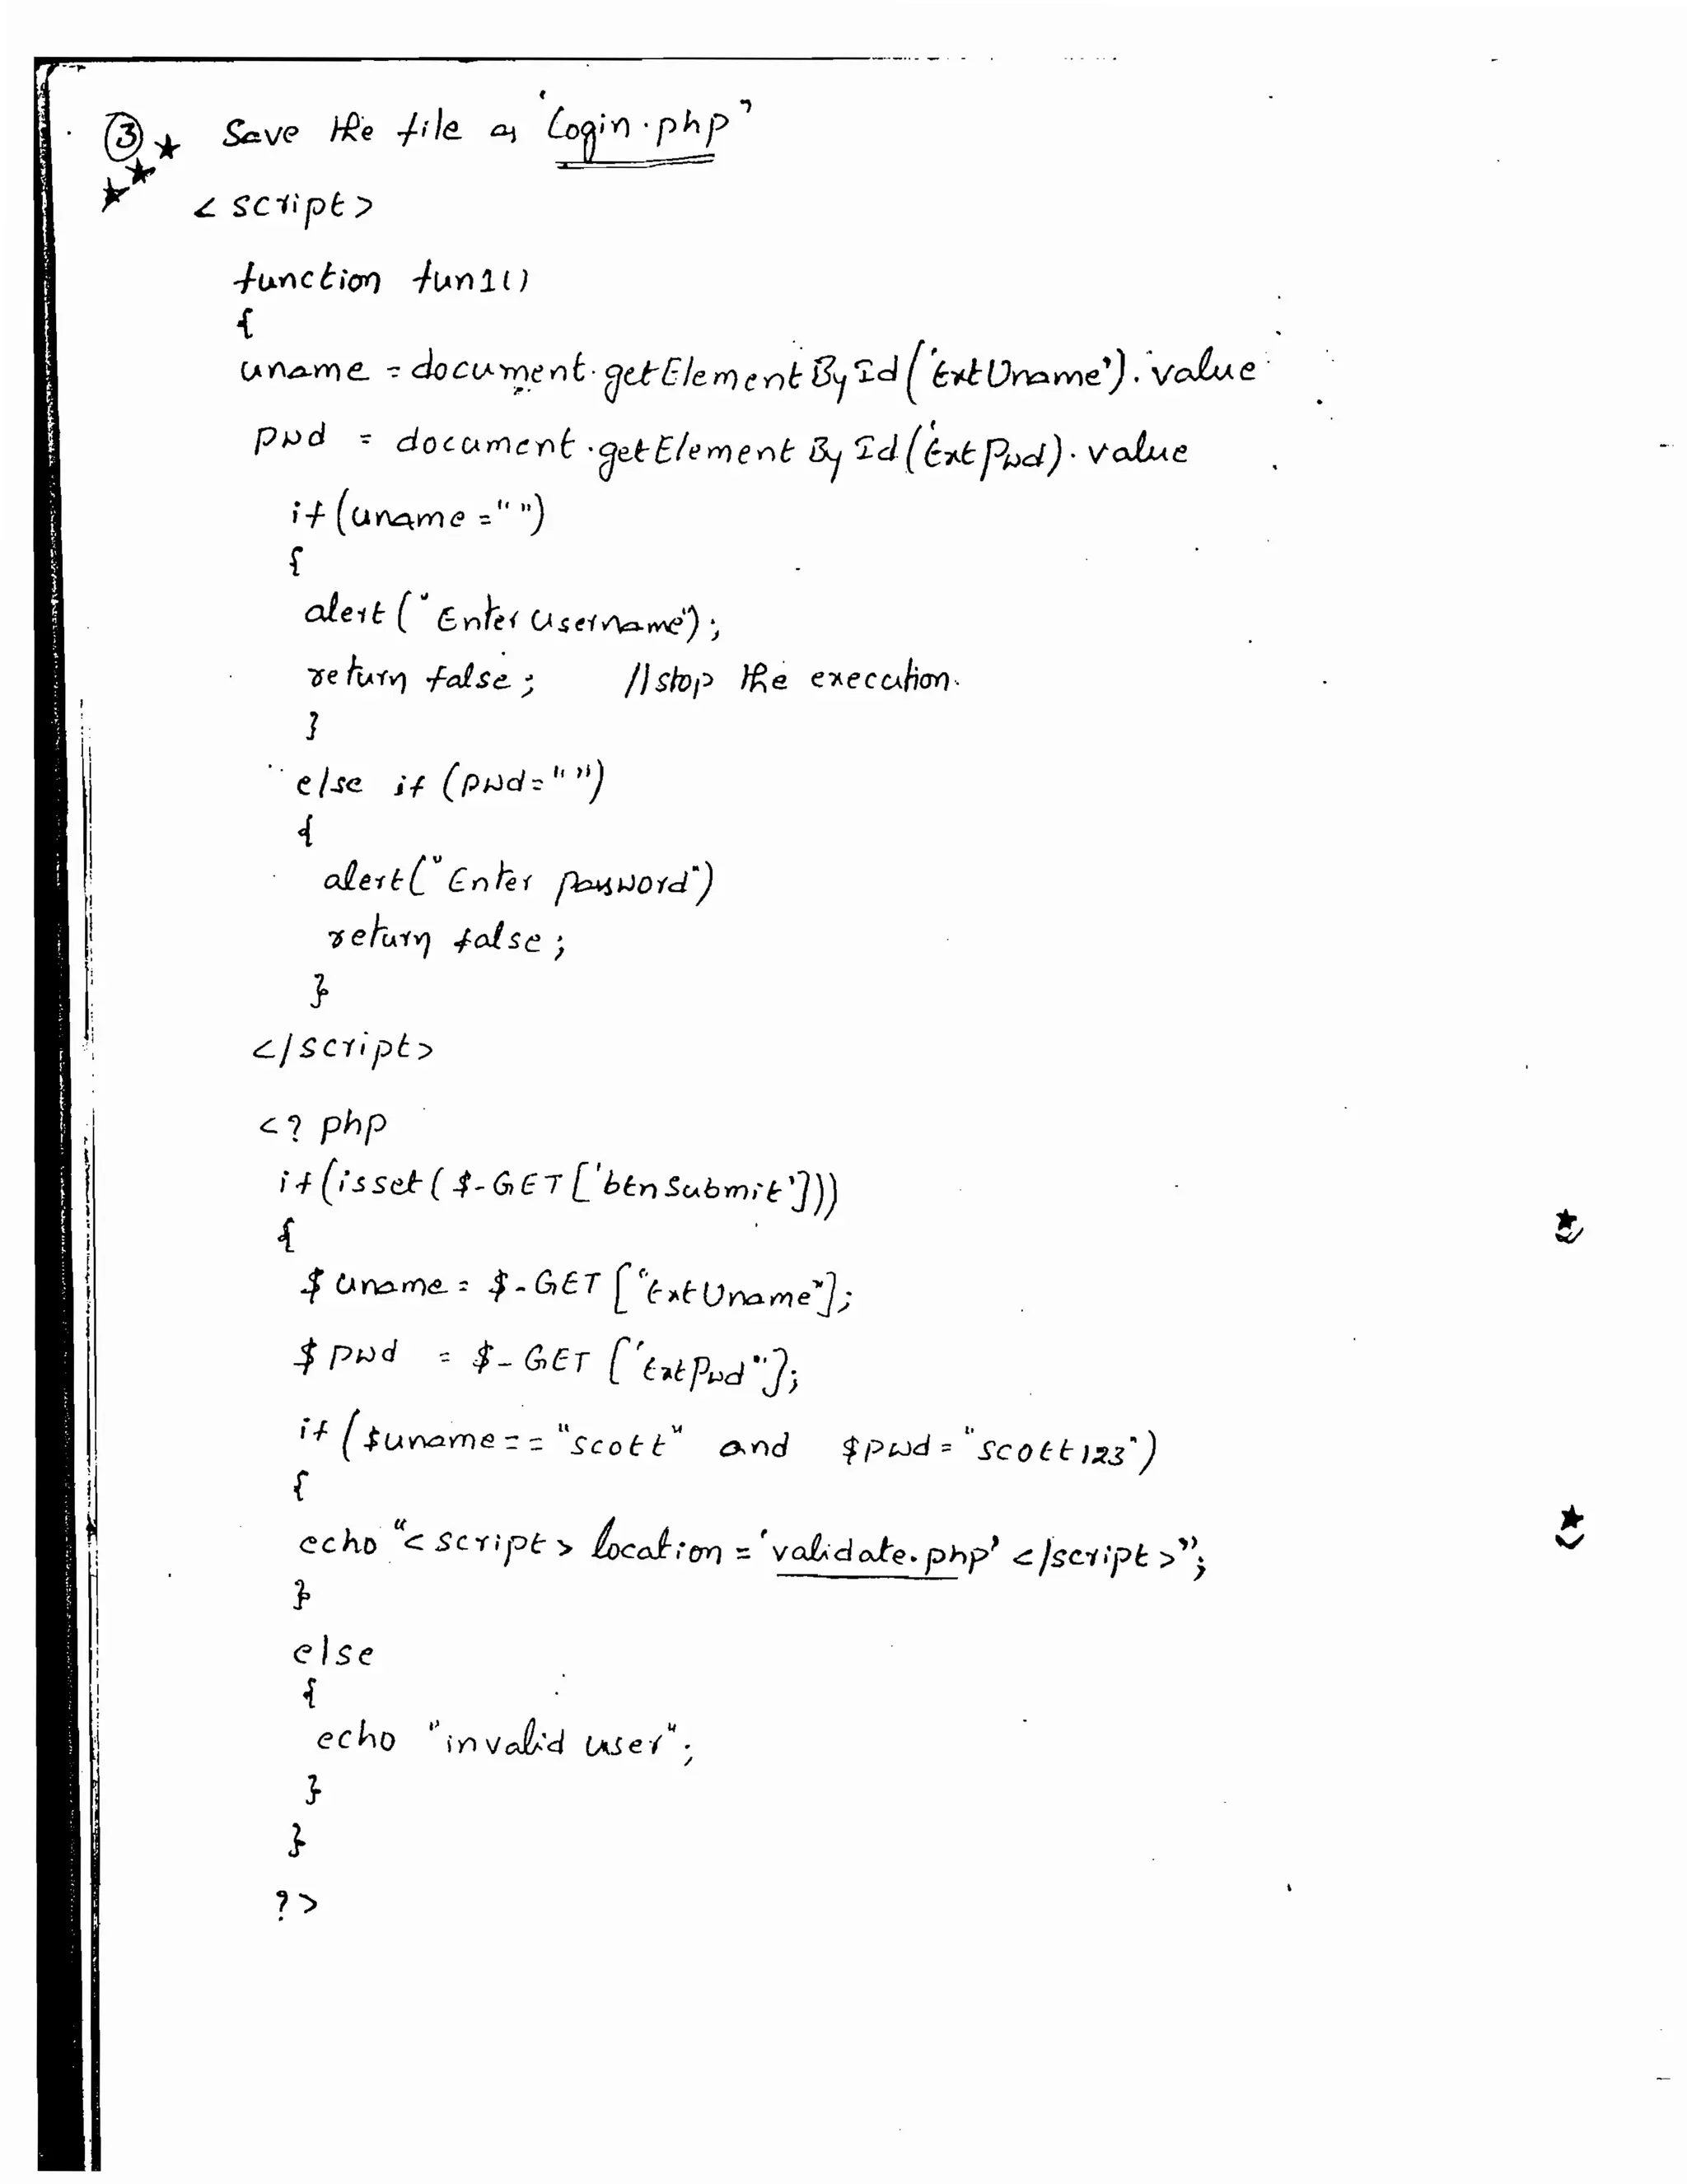 ③ Save the file as 'Login.php'
<script>
function fun1()
{
uname = document.getElementById('txtUname').value
pwd = document.getElementById('txtPwd).value
if (uname = " ")
{
alert ("Enter username");
return false; //stop the execution.
}
else if (pwd=" ")
{
alert("Enter password")
return false;
}
</script>
<? php
if(isset($_GET['btnSubmit']))
{
$uname = $_GET["txtUname"];
$pwd = $_GET['txtPwd"];
if ($uname == "scott" and $pwd = "scott123")
{
echo "<script> location = 'validate.php' </script>";
}
else
{
echo "invalid user";
}
}
?>